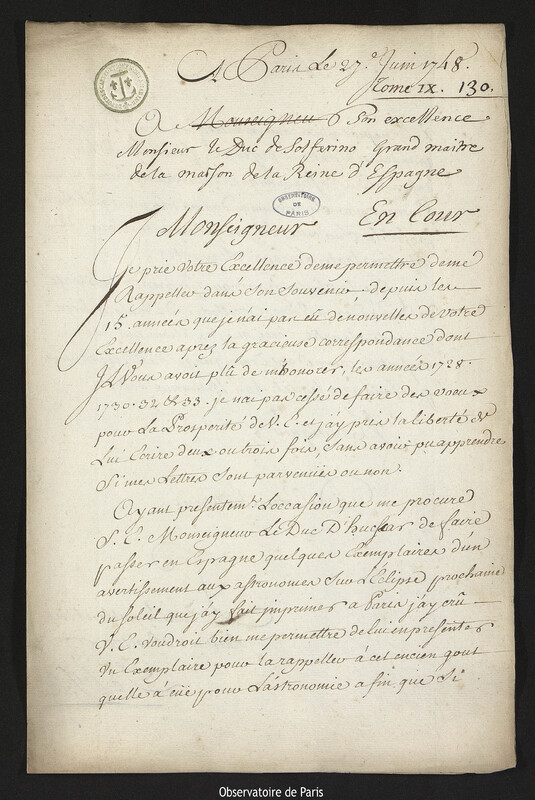 A Paris Le 27.e Juin 1748.
Tome IX. 130.
A Monseigneu Son excellence
Monsieur le Duc de Solfarino Grand maitre
de la maison de la Reine d'Espagne
OBSERVATOIRE
DE
PARIS
Monseigneur En Cour
Je prie Votre Excellence de me permettre de me
Rappeller dans Son Souvenir, depuis les
15. années que je n'ai pas eü de nouvelles de Votre
Excellence aprez la gracieuse correspondance dont
Il Vous avoit plû de m'honorer, les années 1728.
1730. 32 & 33. je n'ai pas cessé de faire des voeux
pour La Prosperité de V. E. et j'ay pris la liberté de
Lui Ecrire deux ou trois fois, Sans avoir pu apprendre
Si mes Lettres Sont parvenües ou non.
Ayant presentem.t L'occasion que me procure
S. E. Monseigneur Le Duc D'huescar de faire
passer en Espagne quelques Exemplaires d'un
avertissement aux astronomes Sur L'Eclipse prochaine
du Soleil que j'ay fait imprimer a Paris j'ay crû
V. E. voudroit bien me permettre de lui en presenter
Un Exemplaire pour la rappeller à cet encien gout
qu'elle à eüe pour L'astronomie a fin que Si
Observatoire de Paris